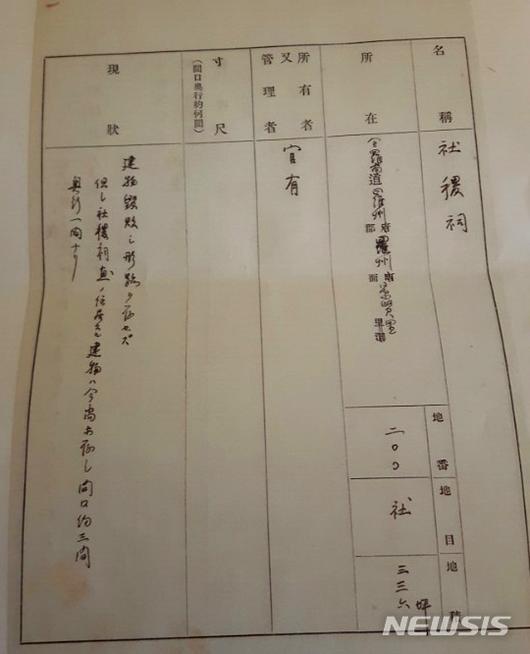 名稱
社稷祠
所在
全羅南道羅州
府
郡
羅州
府
面
地番
二〇〇
地目
社
地積
三三六坪
所有者
又
管理者
官有
寸尺
(間口奧行約何間)
現狀
建物毀敗シ形跡ヲ存セズ
但シ社稷祠直ノ住居セル建物ハ今尚存シ間口約三間
奧行一間ナリ
NEWSIS